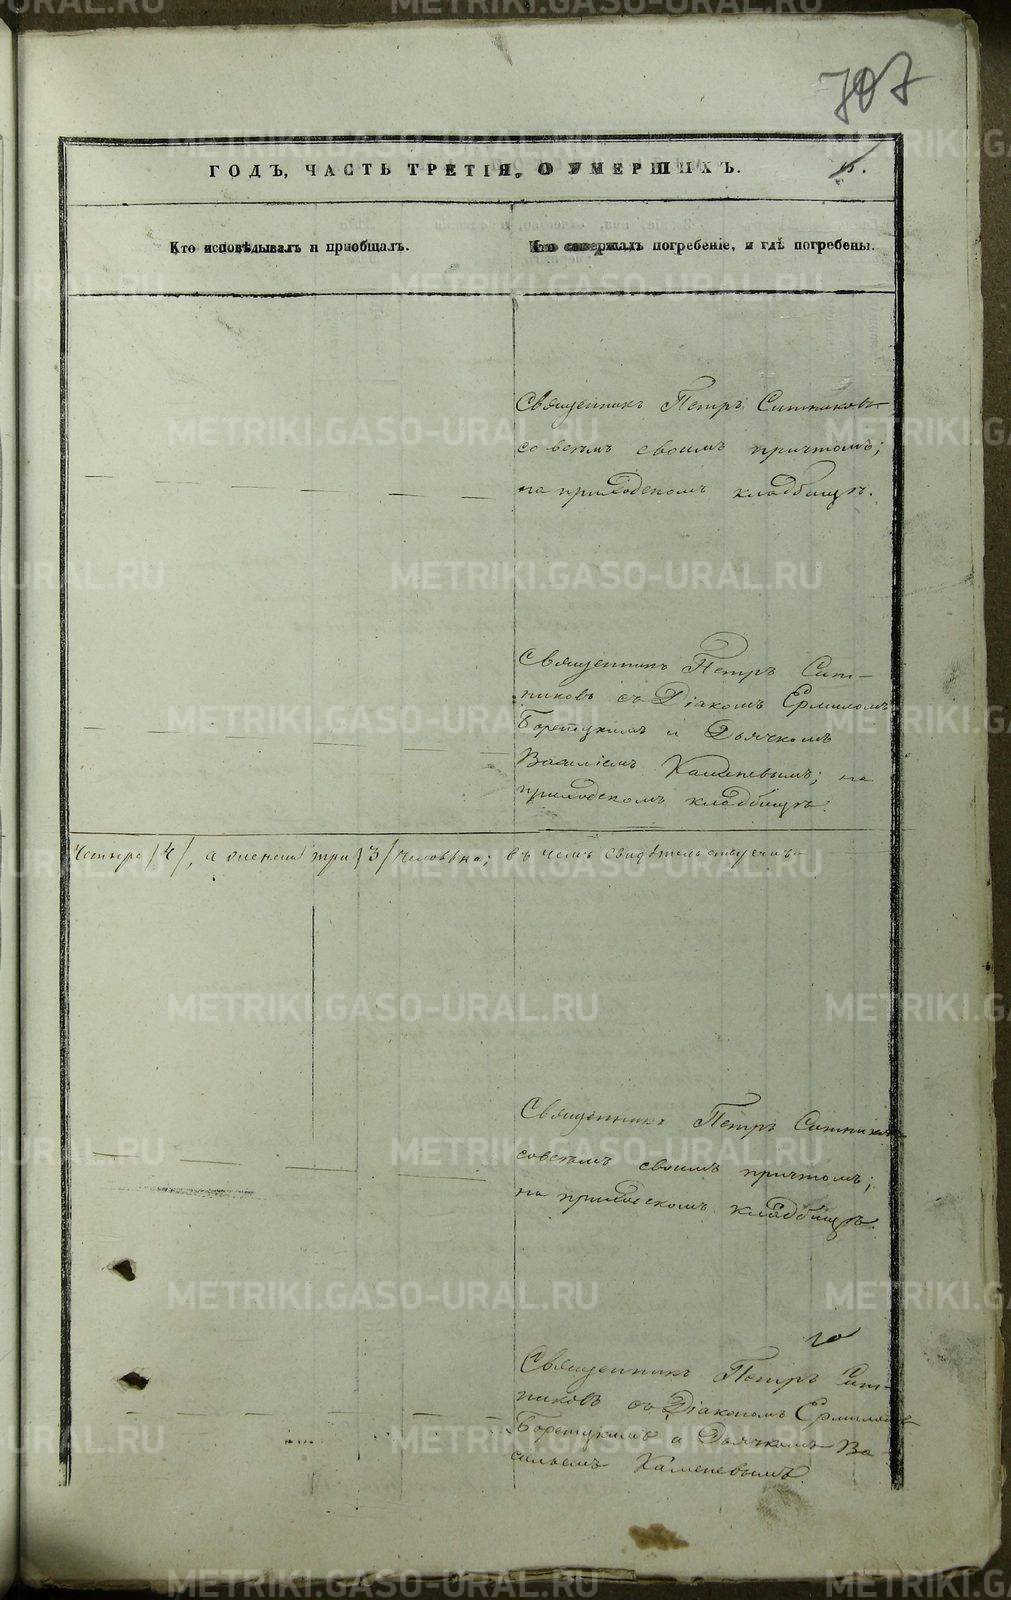 707
ГОДЪ, ЧАСТЬ ТРЕТІЯ, О УМЕРШИХЪ.
Кто исповѣдывалъ и пріобщалъ.
Кто совершалъ погребеніе, и гдѣ погребены.
Священникъ Петръ Ситниковъ
со всѣмъ своимъ причтомъ;
на приходскомъ кладбищѣ.
Священникъ Петръ Сит-
никовъ съ Діакономъ Ермиломъ
и Дьячкомъ
Василіемъ Каменевымъ; на
приходскомъ кладбищѣ.
Четыре /4/, а женска три /3/ человѣка; въ чемъ свидѣтельствуемъ
Священникъ Петръ Ситниковъ
со всѣмъ своимъ причтомъ;
на приходскомъ кладбищѣ.
Священникъ Петръ Сит-
никовъ съ Діакономъ Ермиломъ
и Дьячкомъ Ва-
сильемъ Каменевымъ.
METRIKI.GASO-URAL.RU